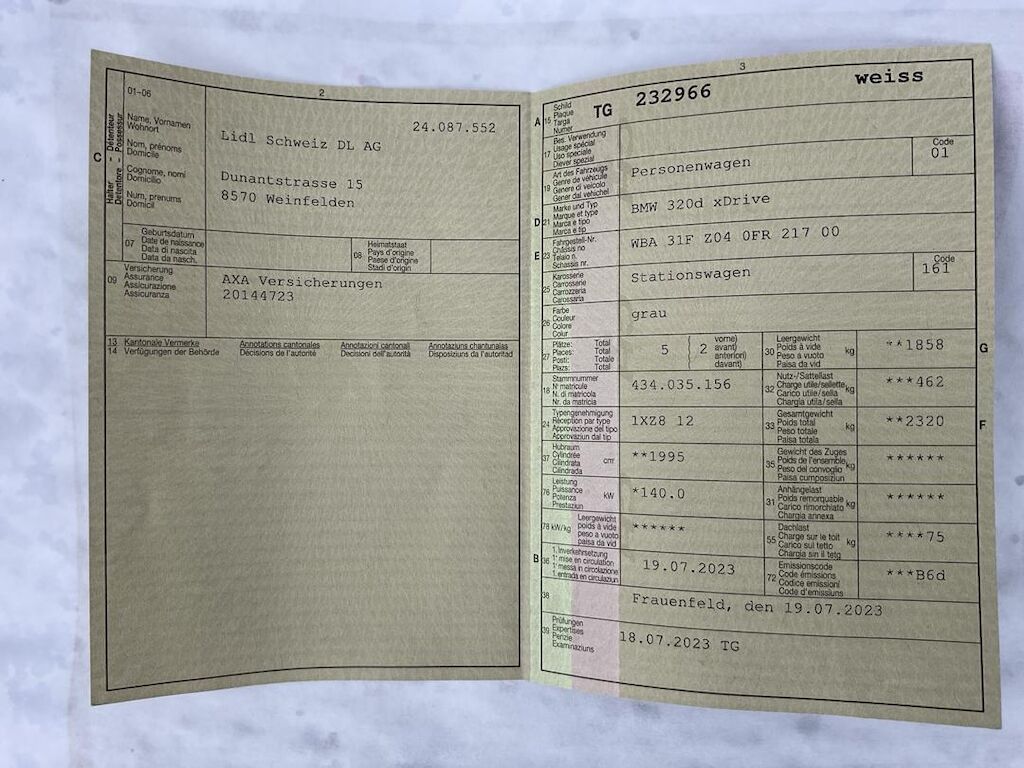 2
01-06
24.087.552
C
Halter - Détenteur
Detentore - Possessur
Name, Vornamen
Wohnort
Nom, prénoms
Domicile
Cognome, nomi
Domicilio
Num, prenums
Domicil
Lidl Schweiz DL AG
Dunantstrasse 15
8570 Weinfelden
07
Geburtsdatum
Date de naissance
Data di nascita
Data da nasch.
08
Heimatstaat
Pays d'origine
Paese d'origine
Stadi d'origin
09
Versicherung
Assurance
Assicurazione
Assicuranza
AXA Versicherungen
20144723
13 Kantonale Vermerke
14 Verfügungen der Behörde
Annotations cantonales
Décisions de l'autorité
Annotazioni cantonali
Decisioni dell'autorità
Annotaziuns chantunalas
Disposiziuns da l'autoritad
3
A 15
Schild
Plaque
Targa
Numer
TG 232966 weiss
17
Bes. Verwendung
Usage spécial
Uso speciale
Diever spezial
19
Art des Fahrzeugs
Genre de véhicule
Genere di veicolo
Gener dal vehichel
Personenwagen
Code
01
D 21
Marke und Typ
Marque et type
Marca e tipo
Marca e tip
BMW 320d xDrive
E 23
Fahrgestell-Nr.
Châssis no
Telaio n.
Schassis nr.
WBA 31F Z04 0FR 217 00
25
Karosserie
Carrosserie
Carrozzeria
Carossaria
Stationswagen
Code
161
26
Farbe
Couleur
Colore
Colur
grau
27
Plätze: Total
Places: Total
Posti: Totale
Plazs: Total
5 ( 2
vorne)
avant)
anteriori)
davant)
30
Leergewicht
Poids à vide
Peso a vuoto
Paisa da vid
kg
**1858
G
18
Stammnummer
N° matricule
N. di matricola
Nr. da matricla
434.035.156
32
Nutz-/Sattellast
Charge utile/sellette
Carico utile/sella
Chargia utila/sella
kg
***462
24
Typengenehmigung
Réception par type
Approvazione del tipo
Approvaziun dal tip
1XZ8 12
33
Gesamtgewicht
Poids total
Peso totale
Paisa totala
kg
**2320
F
37
Hubraum
Cylindrée
Cilindrata
Cilindrada
cm³
**1995
35
Gewicht des Zuges
Poids de l'ensemble
Peso del convoglio
Paisa cumposiziun
kg
******
76
Leistung
Puissance
Potenza
Prestaziun
kW
*140.0
31
Anhängelast
Poids remorquable
Carico rimorchiato
Chargia annexa
kg
******
78 kW/kg
Leergewicht
poids à vide
peso a vuoto
paisa da vid
******
55
Dachlast
Charge sur le toit
Carico sul tetto
Chargia sin il tetg
kg
****75
B 36
1. Inverkehrsetzung
1re mise en circulation
1a messa in circolazione
1. entrada en circulaziun
19.07.2023
72
Emissionscode
Code émissions
Codice emissioni
Code d'emissiuns
***B6d
38
Frauenfeld, den 19.07.2023
39
Prüfungen
Expertises
Perizie
Examinaziuns
18.07.2023 TG